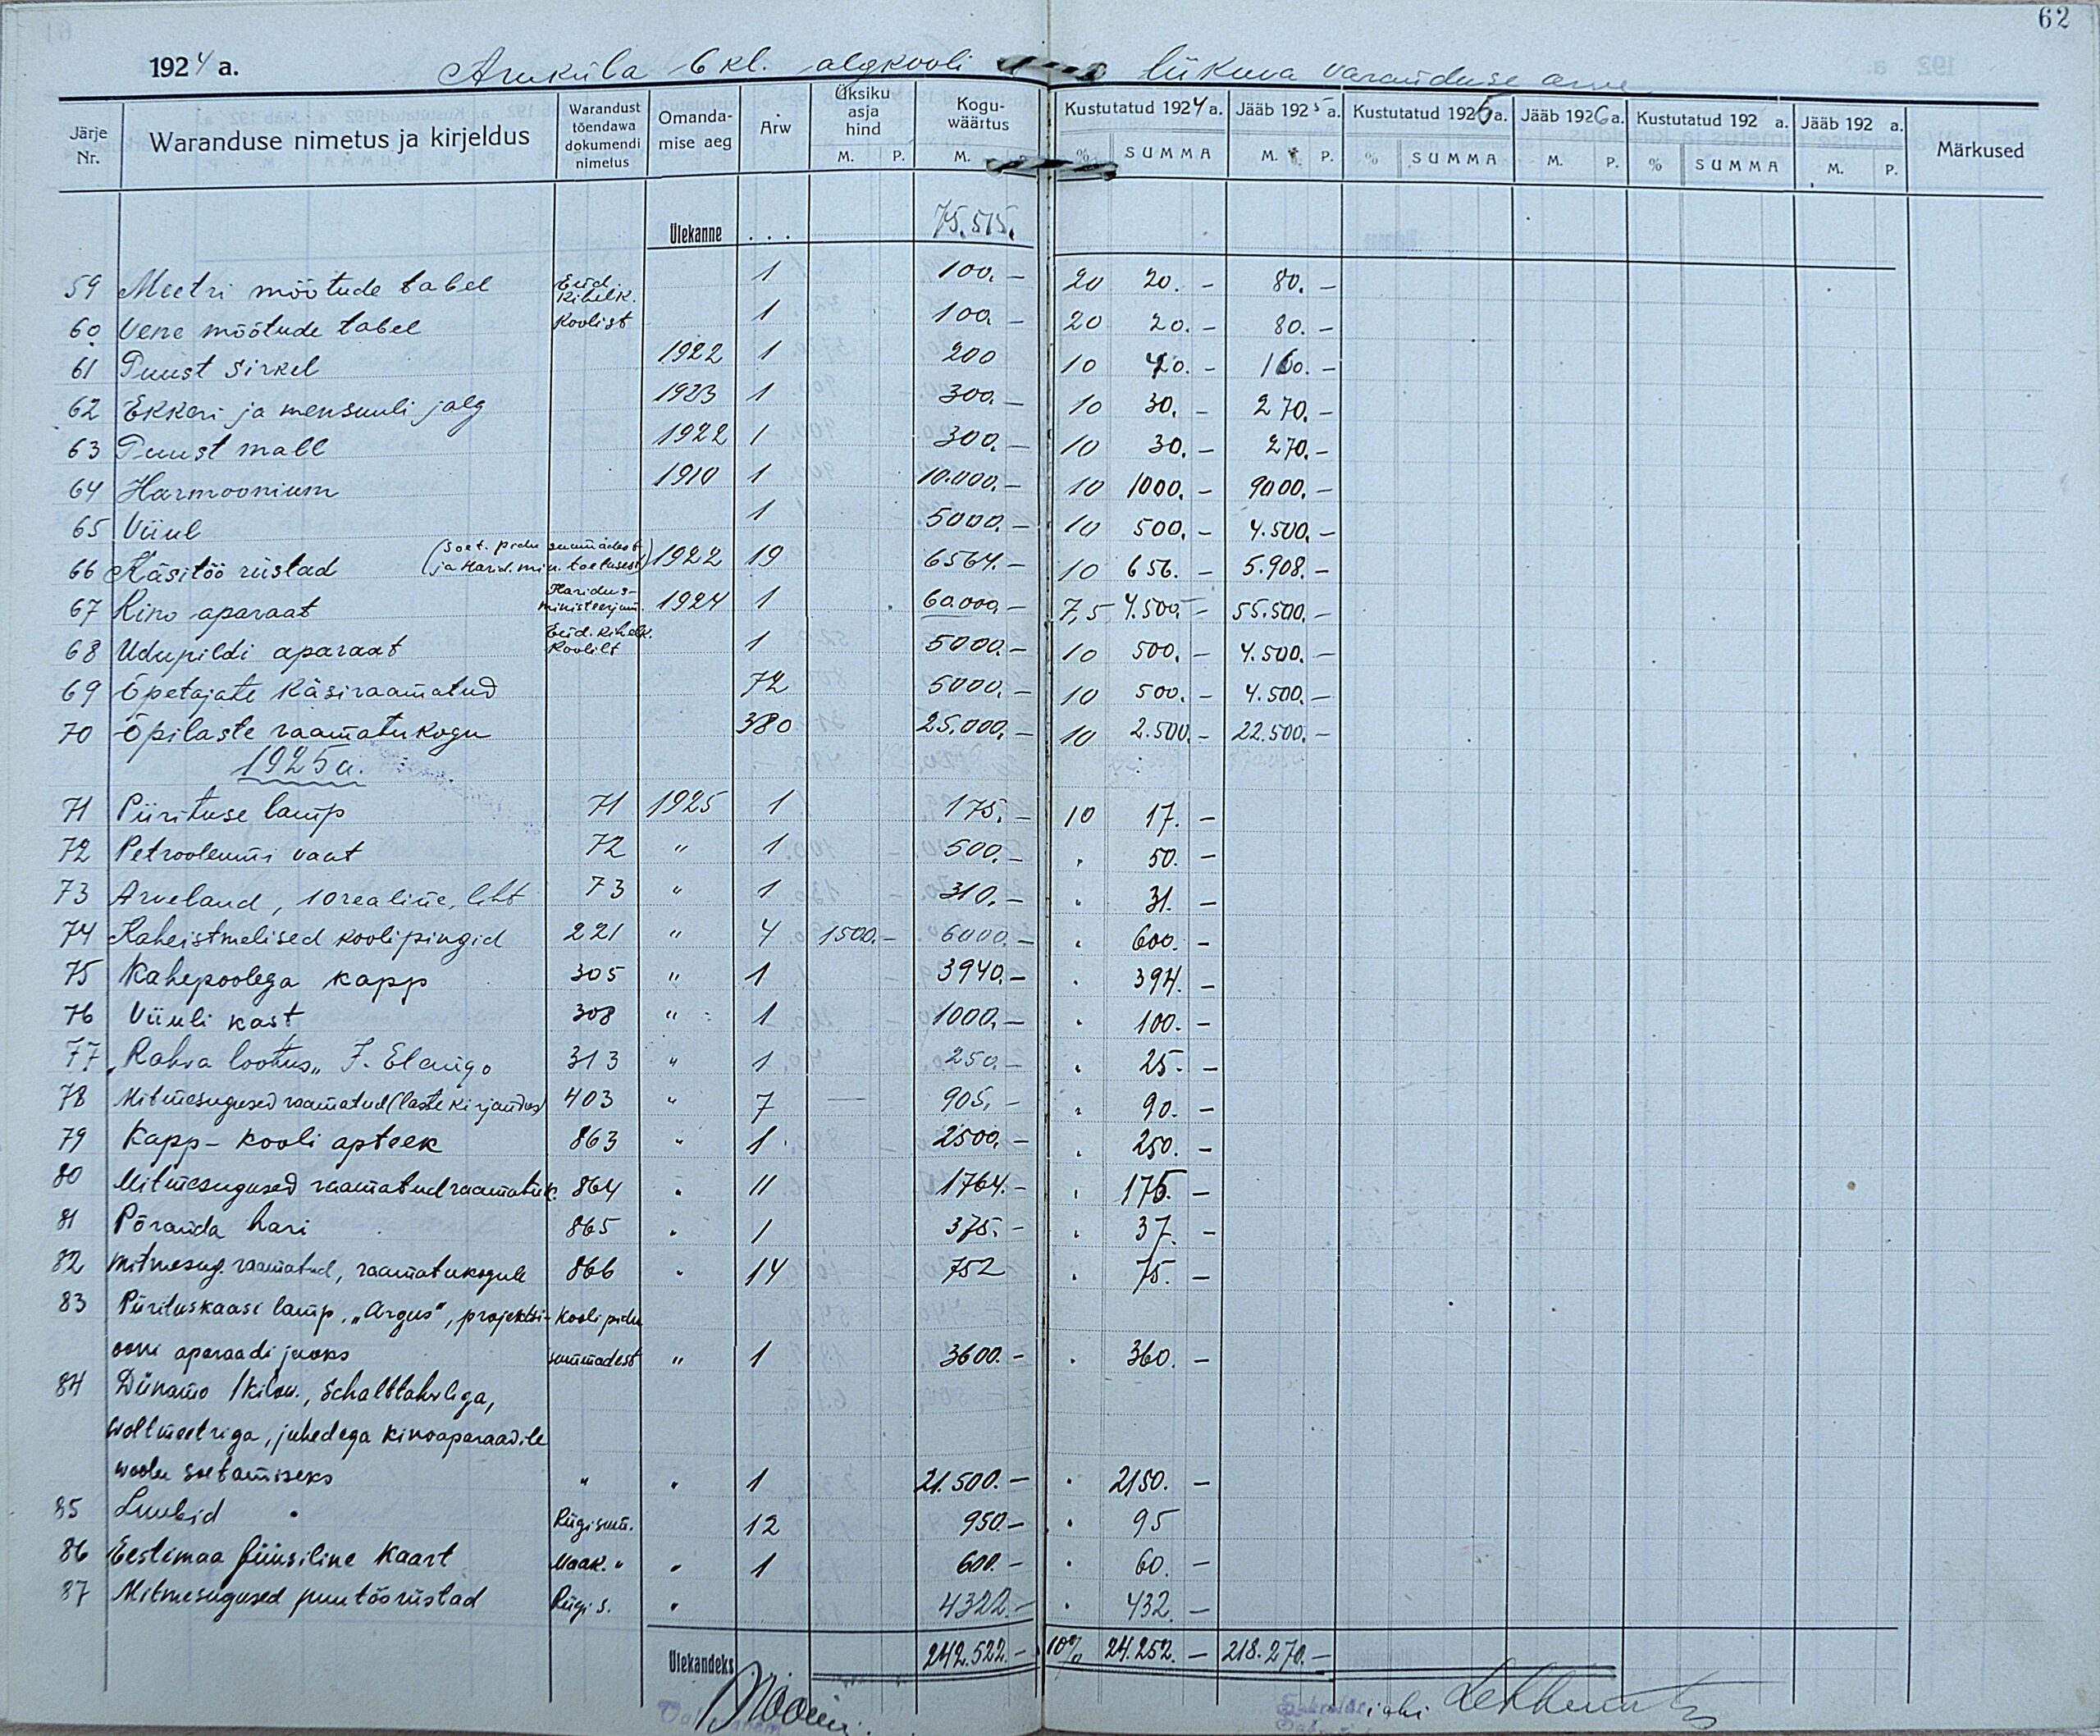 62
1924 a. Aruküla 6 kl. algkooli liikuva varanduse arve
Järje Nr. Waranduse nimetus ja kirjeldus Warandust tõendawa dokumendi nimetus Omandamise aeg Arw Üksiku asja hind M. P. Koguwäärtus M. Kustutatud 1924 a. % SUMMA Jääb 1925 a. M. P. Kustutatud 1926 a. % SUMMA Jääb 1926 a. M. P. Kustutatud 192 a. % SUMMA Jääb 192 a. M. P. Märkused
Ülekanne . . . 75.515.
59 Meetri mõõtude tabel End. Kihelk. 1 100.- 20 20.- 80.-
60 Vene mõõtude tabel Koolist 1 100.- 20 20.- 80.-
61 Puust sirkel 1922 1 200 10 40.- 160.-
62 Ekkeri ja mensuuli jalg 1923 1 300.- 10 30.- 270.-
63 Puust mall 1922 1 300.- 10 30.- 270.-
64 Harmoonium 1910 1 10.000.- 10 1000.- 9000.-
65 Viiul 1 5000.- 10 500.- 4.500.-
66 Käsitöö riistad (Soet. pidu summadest ja Harid.min. toetusest) 1922 19 6564.- 10 656.- 5.908.-
67 Kino aparaat Haridusministeerjum. 1924 1 60.000.- 7,5 4.500.- 55.500.-
68 Udupildi aparaat End. Kihelk. Koolilt 1 5000.- 10 500.- 4.500.-
69 Õpetajate Käsiraamatud 72 5000.- 10 500.- 4.500.-
70 Õpilaste raamatukogu 380 25.000.- 10 2.500.- 22.500.-
1925 a.
71 Piirituse lamp 71 1925 1 175.- 10 17.-
72 Petrooleumi vaat 72 " 1 500.- " 50.-
73 Arvelaud, 10realine, liht 73 " 1 310.- " 31.-
74 Kaheistmelised koolipingid 221 " 4 1500.- 6000.- " 600.-
75 Kahepoolega kapp 305 " 1 3940.- " 394.-
76 Viiuli kast 308 " 1 1000.- " 100.-
77 „Rahva lootus„ J. Elango 313 " 1 250.- " 25.-
78 Mitmesugused raamatud (laste kirjandus) 403 " 7 — 905.- " 90.-
79 Kapp - kooli apteek 863 " 1 2500.- " 250.-
80 Mitmesugused raamatud raamatuk. 864 " 11 1764.- " 176.-
81 Põranda hari 865 " 1 375.- " 37.-
82 Mitmesug. raamatud, raamatukogule 866 " 14 752 " 75.-
83 Piirituskaasi lamp, „Argus", projektsi- Kooli pidu
ooni aparaadi jaoks summadest " 1 3600.- " 360.-
84 Dünamo 1 kilow., Schalttahvliga,
woltmeetriga, juhedega kinoaparaadile
woolu soetamiseks " " 1 21.500.- " 2150.-
85 Luubid Riigisum. 12 950.- " 95
86 Eestimaa füüsiline kaart Maak. " " 1 600.- " 60.-
87 Mitmesugused puutööriistad Riigi s. " 4322.- " 432.-
Ülekandeks 242.522.- 10% 24.252.- 218.270.-